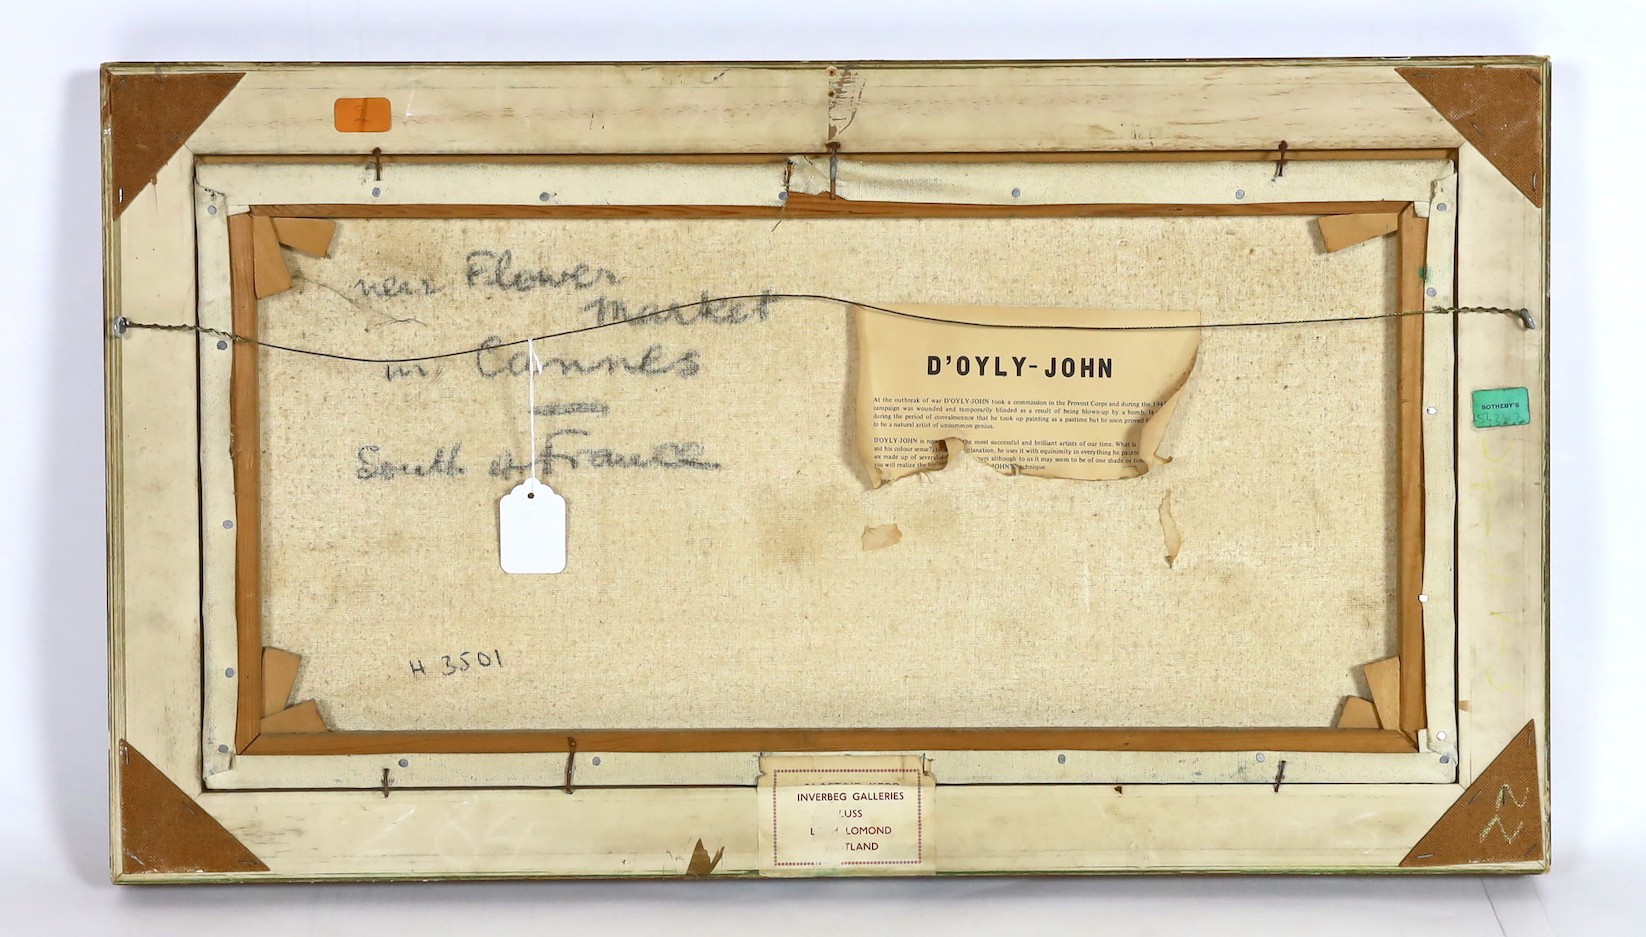 near Flower
Market
in Cannes
South of France
D'OYLY-JOHN
At the outbreak of war D'OYLY-JOHN took a commission in the Provost Corps and during the 194
campaign was wounded and temporarily blinded as a result of being blown-up by a bomb. It
during the period of convalescence that he took up painting as a pastime but he soon proved h
to be a natural artist of uncommon genius.
D'OYLY-JOHN is no the most successful and brilliant artists of our time. What is
and his colour sense? planation, he uses it with equinimity in everything he paints
are made up of several urs although to us it may seem to be of one shade or ton
you will realise the JOHN' chnique.
SOTHEBY'S
H 3501
INVERBEG GALLERIES
LUSS
L H LOMOND
TLAND